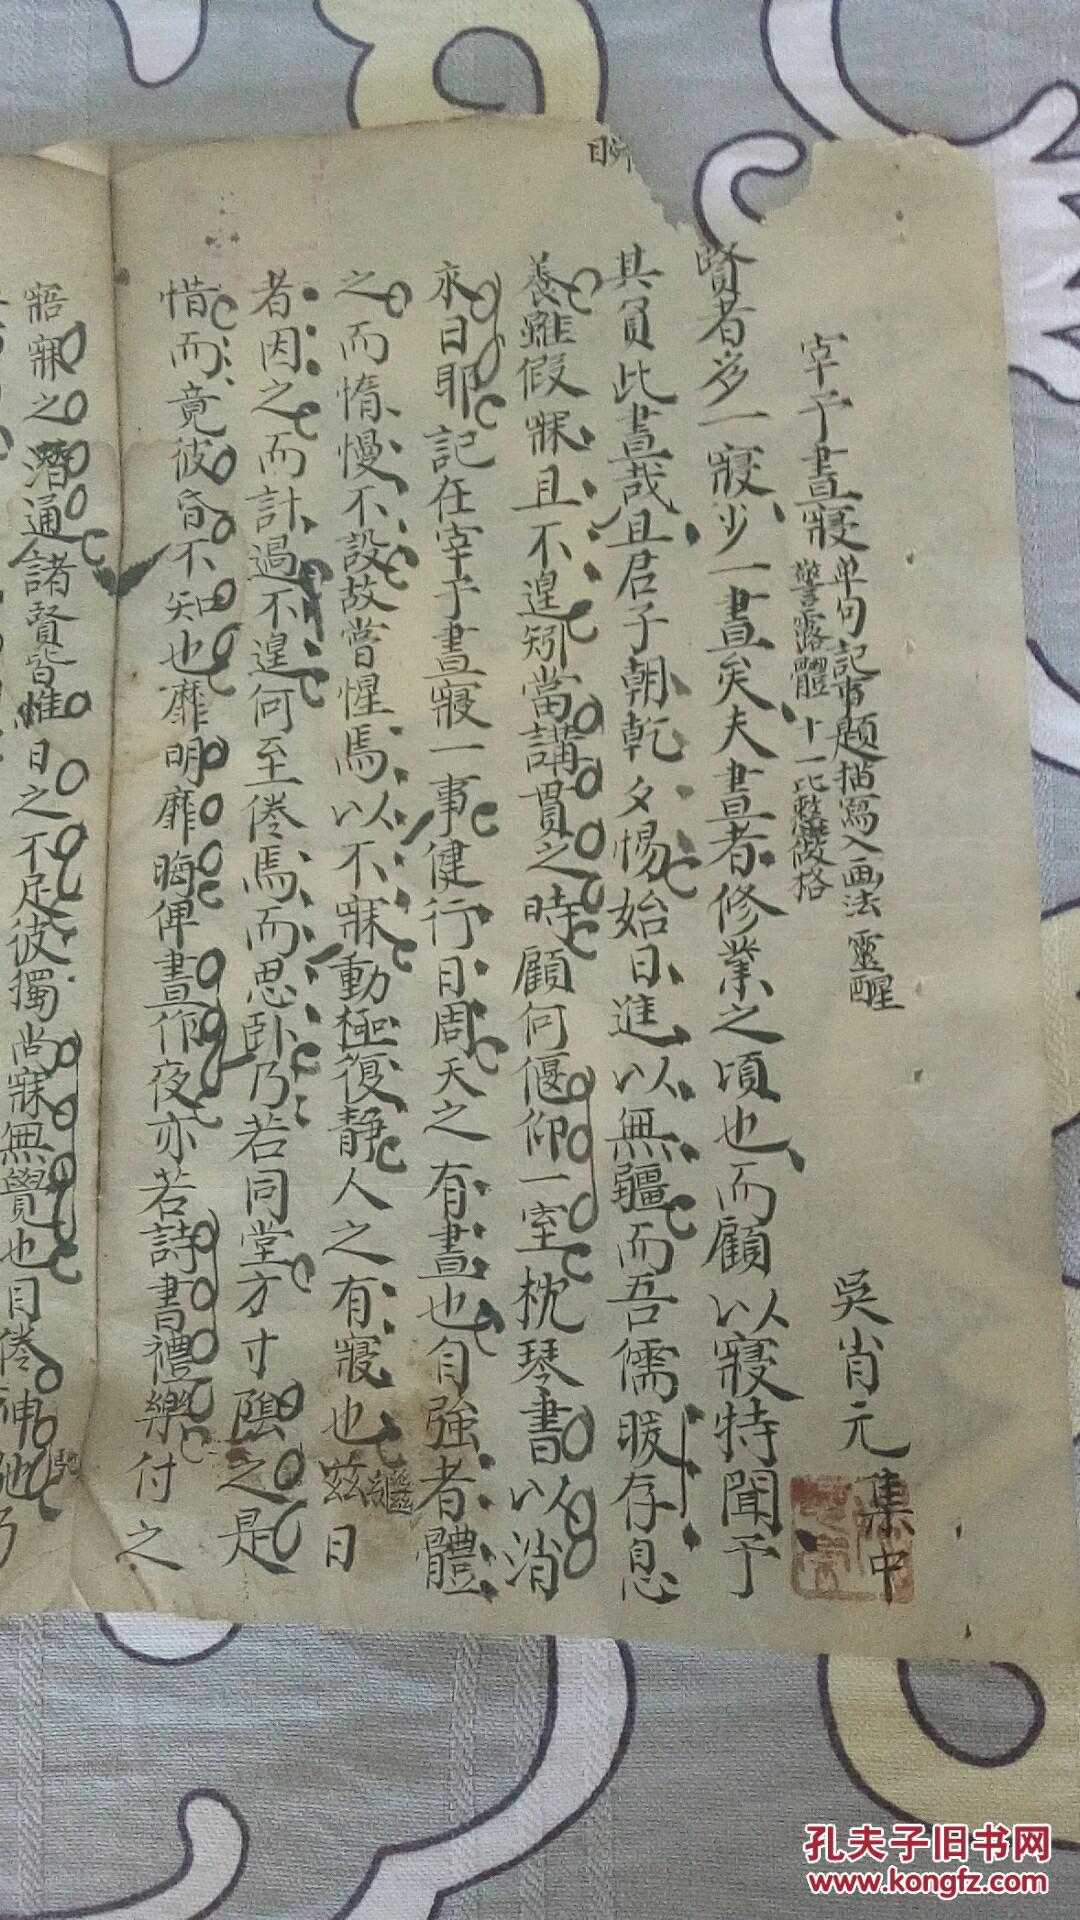 宰予晝寢
單句記事題描寫入画法靈醒
警露體十一比整散格
吳肖元
集中
賢者多一寢少一晝矣夫晝者修業之頃也而顧以寢特聞予
其負此晝哉且君子朝乾夕惕始日進以無疆而吾儒暇存息
養雖假寐且不遑矧當講貫之時顧何偃仰一室枕琴書以消
永日耶記在宰予晝寢一事健行日周天之有晝也自強者體
之而惰慢不設故嘗惺焉以不寐動極復靜人之有寢也茲日
繼
者因之而計過不遑何至倦焉而思卧乃若同堂方寸隂之是
惜而竟彼昏不知也靡明靡晦俾晝作夜亦若詩書禮樂付之
寤寐之潛通諸賢皆惟日之不足彼獨尚寐無覺也目倦神馳乃
馳
孔夫子旧书网
www.kongfz.com